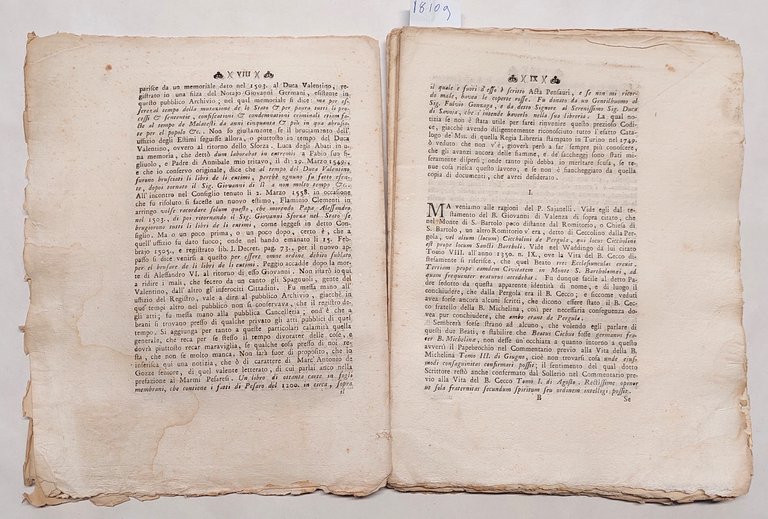 18109
VIII
parisce da un memoriale dato nel 1503. al Duca Valentino, re-
gistrato in una filza del Notajo Giovanni Germani, esistente in
questo pubblico Archivio; nel qual memoriale si dice: ma per es-
serenoi al tempo della mutazione de lo Stato & per paura tutti lo pro-
cessi & sentenzie, confiscationi & condennationi criminale trium fa-
cte al tempo de Malatesti da anni cinquanta & più in qua abrusia-
te per el popolo &c. Non so giustamente se il bruciamento dell'
uffizio degli Estimi seguisse allora, o piuttosto in tempo del Duca
Valentino, ovvero al ritorno dello Sforza. Luca degli Abati in u-
na memoria, che dettò dum laborabat in extremis a Fabio suo fi-
gliuolo, e Padre di Annibale mio tritavo, il dì 29. Marzo 1549.,
e che io conservo originale, dice che al tempo del Duca Valentino
furono brusciati li libri de li extimi, perchè ognuno fu fatto esente,
dopoi tornato il Sig. Giovanni di lì a non molto tempo &c.
All' incontro nel Consiglio tenuto li 2. Marzo 1558. in occasione
che fu risoluto si facesse un nuovo estimo, Flaminio Clementi in
arringo volse recordare solum questo, che morendo Papa Alessandro
nel 1503. & poi ritornando il Sig. Giovanni Sforza nel Stato se
brugiorono tutti li libri de lo extimo, come leggesi in detto Con-
siglio. Ma o un poco prima, o un poco dopo, certo è, che a
quell' uffizio fu dato fuoco; onde nel bando emanato li 15. Feb-
brajo 1505., e registrato lib. I. Decret. pag. 73., per il nuovo ap-
passo si dice venirsi a questo per essere omne ordine debito sublato
per el brusare de li libri de lo extimo. Peggio accadde dopo la mor-
te di Alessandro VI. al ritorno di esso Giovanni. Non istarò io quì
a ridire i mali, che fecero da un canto gli Spagnuoli, gente del
Valentino, dall' altro gl' inferociti Cittadini. Fu messa mano all'
uffizio del Registro, vale a dire al pubblico Archivio, giacchè in
que' tempi altro nel pubblico non si conservava, che il registro de-
gli atti; fu messa mano alla pubblica Cancelleria; ond' è che non
si trovano presso di qualche privato gli atti pubblici di quel-
brani si trovano presso di qualche privato gli atti pubblici di quei
tempi. Si aggiunga per tanto a queste particolari calamità quella
generale, che reca per se stesso il tempo divorator delle cose, e
dovrà piuttosto recar maraviglia, se qualche cosa presso di noi re-
sta, che non se molto manca. Non sarà fuor di proposito, che io
inserica quì una notizia, che è di carattere di Marc' Antonio de
Gozze seniore, di quel valente letterato, di cui parlai anco nella
prefazione ai Marmi Pesaresi. Un libro di ottanta carte in foglio
membrani, che contiene i fatti di Pesaro del 1200. in circa, sopra
il
IX
il quale e fuori d'esso è scritto Acta Pensauri, e se non mi ricor-
do male, haveva le coperte rosse. Fu donato da un Gentilhuomo al
Sig. Fulvio Gonzaga, e da detto Signore al Serenissimo Sig. Duca
di Savoia, che s' intende haverlo nella sua libreria. La qual no-
tizia se non è stata utile per farci rinvenire questo prezioso Codi-
ce, giacchè avendo diligentemente riconosciuto tutto l' esatto Cata-
logo de' Mss. di quella Regia Libreria stampato in Turino nel 1749.
ò veduto che non v' è, gioverà però a far sempre più conoscere,
che gli avanzi ancora delle fiamme, e de' saccheggi sono stati mi-
seramente dispersi; onde tanto più debba io meritare scusa, se te-
nue cosa riesca questo lavoro, e se non è fiancheggiato da quella
copia di documenti, che avrei desiderato.
I.
MA veniamo alle ragioni del P. Sajanelli. Vide egli dal te-
stamento del B. Giovanni di Valenza di sopra citato, che
nel Monte di S. Bartolo poco distante dal Romitorio, o Chiesa di
S. Bartolo, un altro Romitorio v' era; detto di Ceccolino dalla Per-
gola, vel alium (locum) Ciccholini de Pergula, qui locus Ciccholini
est prope locum Sancti Bartholi. Vide nel Waddingo da lui citato
Tomo VIII. all' anno 1350. n. IX., ove la Vita del B. Cecco di-
stesamente si riferisce, che quel Beato rexit Ecclesiunculas erexit,
Tertiam prope eamdem Civitatem in Monte S. Bartholomei, ad
quam frequenter oraturus accedebat. Fu dunque facile al detto Pa-
dre sedotto da questa apparente identità di nome, e di luogo il
conchiudere, che dalla Pergola era il B. Cecco; e siccome veduti
avea forse ancora alcuni scritti, che dicono essere stato il B. Cec-
co fratello della B. Michelina, così per necessaria conseguenza do-
vea pur conchiudere, che ambo erant de Pergula.
Sembrerà forse strano ad alcuno, che volendo egli parlare di
questi due Beati, e stabilire che Beatus Cichus fuisse germanus fra-
ter B. Michelinæ, non desse un occhiata a quanto intorno a questo
avverti il Papebrochio nel Commentario previo alla Vita della B.
Michelina Tomo III. di Giugno, cioè non trovarsi cosa unde ejus-
modi consanguinitas confirmari possit; il sentimento di qual dotto
Scrittore restò anche confermato dal Sollerio nel Commentario pre-
vio alla Vita del B. Cecco Tomo I. di Agosto. Rectissime opinor
ut sola fraternitas secundum spiritum seu ordinem intelligi possit.
B Se